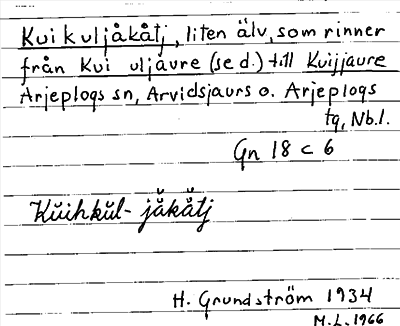 Kuikuljåkåtj, liten älv, som rinner
från Kui uljaure (se d.) till Kuijjaure
Arjeplogs sn, Arvidsjaurs o. Arjeplogs
tg, Nb.l.
Gn 18 c 6
Kŭihkŭl- jå̆kå̆tj
H. Grundström 1934
M.L. 1966